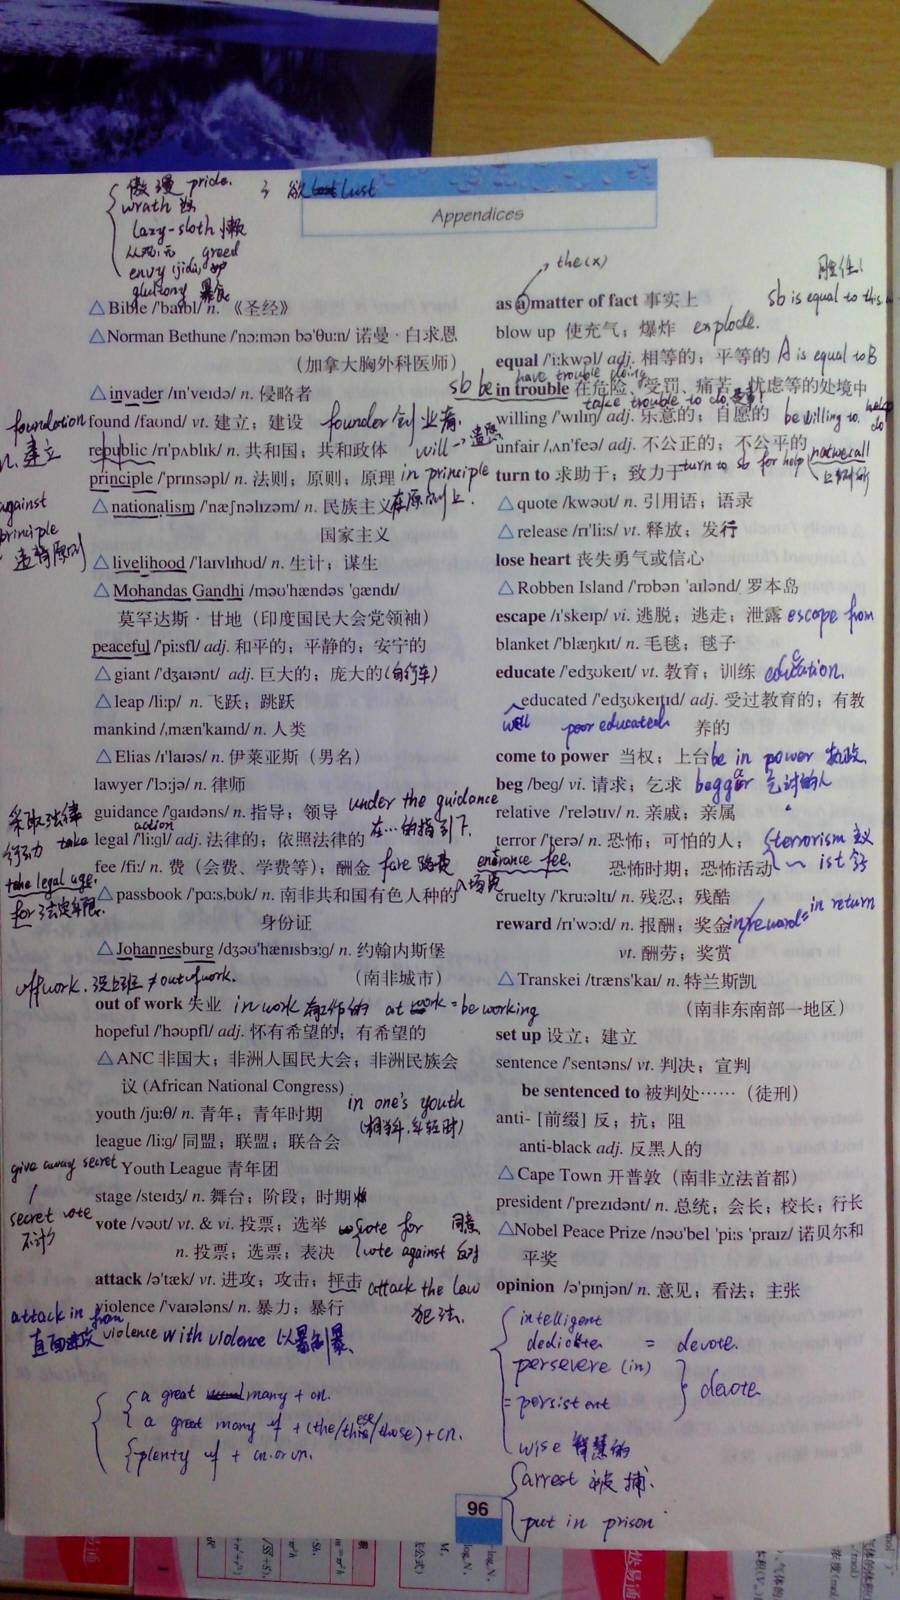 傲慢 pride.
欲 lust
wrath 怒
lazy-sloth 懒
greed
envy
gluttony 暴食
Appendices
△Bible /'baɪbl/ n. 《圣经》
△Norman Bethune /'nɔ:mən bə'θu:n/ 诺曼·白求恩
（加拿大胸外科医师）
△invader /ɪn'veɪdə/ n. 侵略者
foundation
n. 建立
found /faʊnd/ vt. 建立；建设 founder 创业者
republic /rɪ'pʌblɪk/ n. 共和国；共和政体
principle /'prɪnsəpl/ n. 法则；原则；原理 in principle
在原则上
against
principle
违背原则
△nationalism /'næʃnəlɪzəm/ n. 民族主义
国家主义
△livelihood /'laɪvlɪhʊd/ n. 生计；谋生
△Mohandas Gandhi /məʊ'hændəs 'gændɪ/
莫罕达斯·甘地（印度国民大会党领袖）
peaceful /'pi:sfl/ adj. 和平的；平静的；安宁的
△giant /'dʒaɪənt/ adj. 巨大的；庞大的(自行车)
△leap /li:p/ n. 飞跃；跳跃
mankind /ˌmæn'kaɪnd/ n. 人类
△Elias /ɪ'laɪəs/ n. 伊莱亚斯（男名）
lawyer /'lɔjə/ n. 律师
guidance /'gaɪdəns/ n. 指导；领导 under the guidance
在…的指引下.
采取法律
行动 take
action
legal /'li:gl/ adj. 法律的；依照法律的
take legal age.
for 法定年限.
fee /fi:/ n. 费（会费、学费等）；酬金 fare 路费 entrance fee,
入场费
△passbook /'pɑ:s,bʊk/ n. 南非共和国有色人种的
身份证
△Johannesburg /dʒəʊ'hænɪsbɜ:g/ n. 约翰内斯堡
（南非城市）
off work. 没上班 ≠ out of work.
out of work 失业 in work 有工作的 at work = be working
hopeful /'həʊpfl/ adj. 怀有希望的；有希望的
△ANC 非国大；非洲人国民大会；非洲民族会
议 (African National Congress)
youth /ju:θ/ n. 青年；青年时期 in one's youth
league /li:g/ 同盟；联盟；联合会
give away secret
Youth League 青年团
stage /steɪdʒ/ n. 舞台；阶段；时期
secret vote
vote /vəʊt/ vt. & vi. 投票；选举 vote for 同意
n. 投票；选票；表决 vote against 反对
attack /ə'tæk/ vt. 进攻；攻击；抨击 attack the law
犯法.
violence /'vaɪələns/ n. 暴力；暴行
attack in front
violence with violence 以暴制暴.
a great many + cn.
a great many of + (the/these/those) + cn.
plenty of + cn.or un.
the(x)
as a matter of fact 事实上
胜任!
sb is equal to this
blow up 使充气；爆炸 explode.
equal /'i:kwəl/ adj. 相等的；平等的 A is equal to B
have trouble doing
sb be in trouble 在危险、受罚、痛苦、忧虑等的处境中
take trouble to do
willing /'wɪlɪŋ/ adj. 乐意的；自愿的 be willing to
do
will → 遗愿
unfair /ˌʌn'feə/ adj. 不公正的；不公平的
turn to 求助于；致力于 turn to sb for help
△quote /kwəʊt/ n. 引用语；语录
△release /rɪ'li:s/ vt. 释放；发行
lose heart 丧失勇气或信心
△Robben Island /'rɒbən 'aɪlənd/ 罗本岛
escape /ɪ'skeɪp/ vi. 逃脱；逃走；泄露 escape from
blanket /'blæŋkɪt/ n. 毛毯；毯子
educate /'edʒʊkeɪt/ vt. 教育；训练 education.
educated /'edʒʊkeɪtɪd/ adj. 受过教育的；有教
养的
well poor educated
come to power 当权；上台 be in power 执政
beg /beg/ vi. 请求；乞求 beggar 乞讨的人
relative /'relətɪv/ n. 亲戚；亲属
terror /'terə/ n. 恐怖；可怕的人； terrorism 主义
恐怖时期；恐怖活动 ~ist 分子
cruelty /'kru:əltɪ/ n. 残忍；残酷
reward /rɪ'wɔ:d/ n. 报酬；奖金 in reward = in return
vt. 酬劳；奖赏
△Transkei /træns'kaɪ/ n. 特兰斯凯
（南非东南部一地区）
set up 设立；建立
sentence /'sentəns/ vt. 判决；宣判
be sentenced to 被判处……（徒刑）
anti- [前缀] 反；抗；阻
anti-black adj. 反黑人的
△Cape Town 开普敦（南非立法首都）
president /'prezɪdənt/ n. 总统；会长；校长；行长
△Nobel Peace Prize /nəʊ'bel 'pi:s 'praɪz/ 诺贝尔和
平奖
opinion /ə'pɪnjən/ n. 意见；看法；主张
intelligent
dedicate = devote.
persevere (in)
devote
= persistent
wise 智慧的
arrest 被捕.
put in prison
96